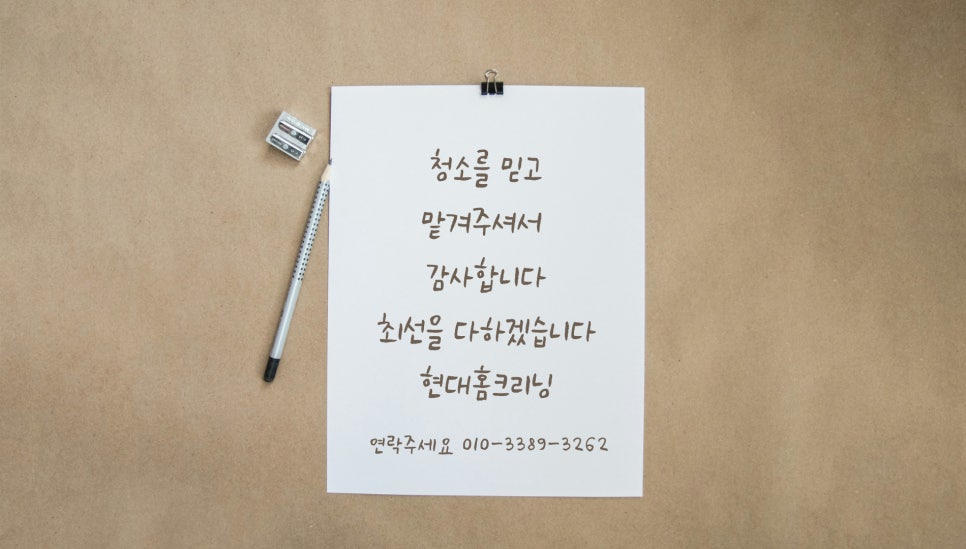 청소를 믿고
맡겨주셔서
감사합니다
최선을 다하겠습니다
현대홈크리닝
연락주세요 010-3389-3262